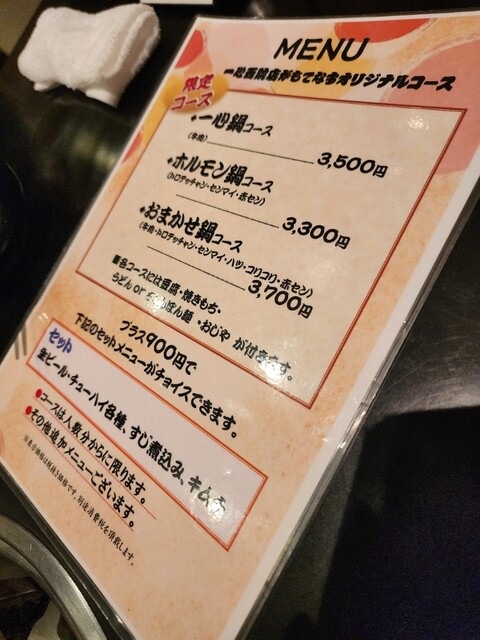 MENU
一心西院店がもてなすオリジナルコース
限定
コース
◆一心鍋コース
(牛肉) 3,500円
◆ホルモン鍋コース
(トロテッチャン・センマイ・赤セン)
3,300円
◆おまかせ鍋コース
(牛肉・トロテッチャン・センマイ・ハツ・コリコリ・赤セン)
3,700円
■各コースには豆腐・焼きもち・
うどん or ちゃんぽん麺・おじや が付きます。
プラス900円で
下記のセットメニューがチョイスできます。
セット
生ビール・チューハイ各種、すじ煮込み、キムチ
●コースは人数分からに限ります。
●その他追加メニューございます。
※表示価格は税抜き価格です。別途消費税を頂戴します。